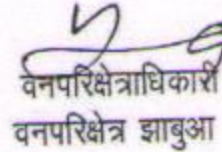 वनपरिक्षेत्राधिकारी
वनपरिक्षेत्र झाबुआ